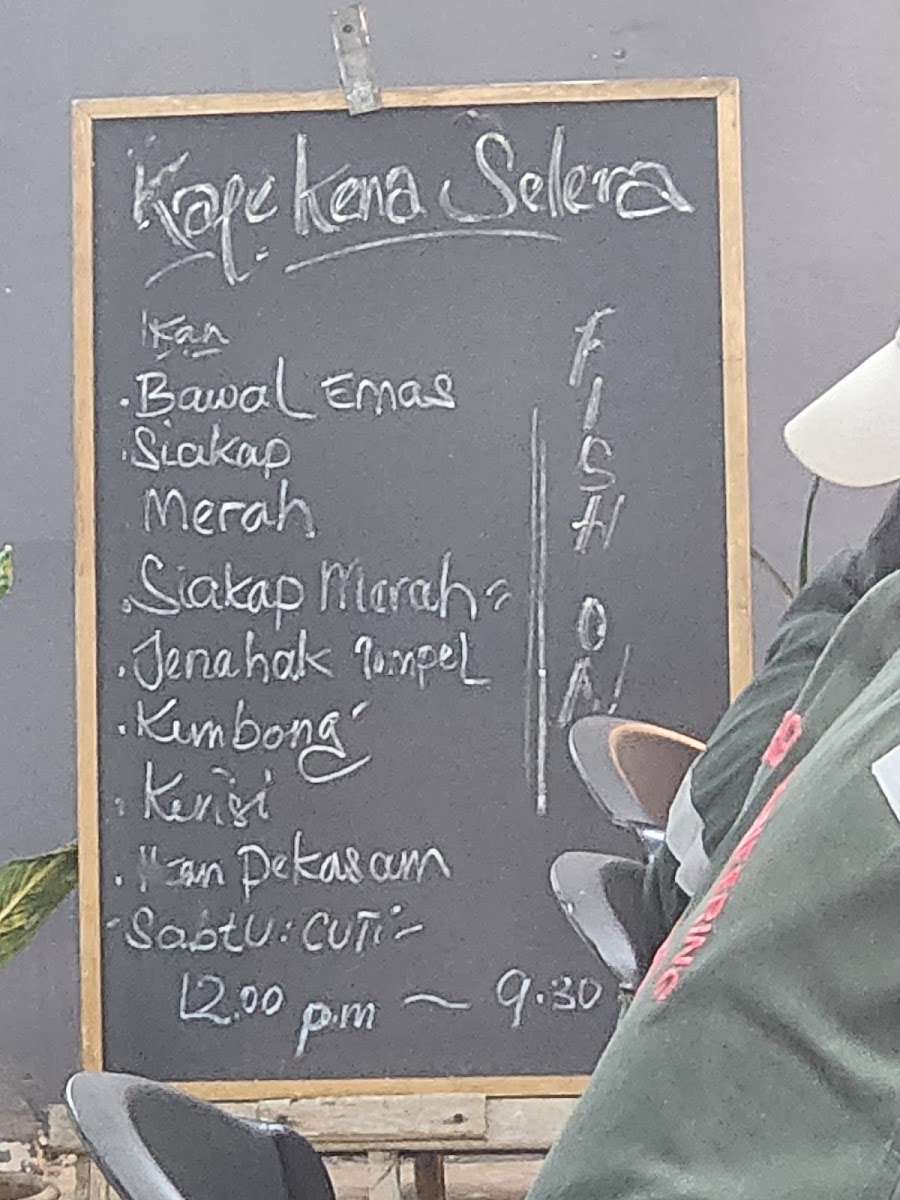 Kafe Kena Selera
Ikan
. Bawal Emas
. Siakap
Merah
. Siakap Merah
. Jenahak Tompel
. Kembong
. Kerisi
. Ikan Pekasam
- Sabtu: CUTi -
12.00 p.m ~ 9.30
FISH
ON